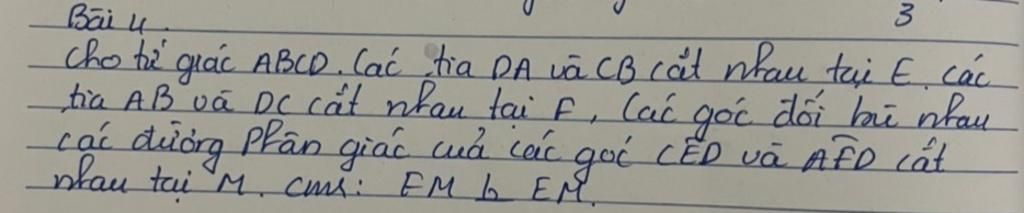 Bài 4.
3
Cho tứ giác ABCD. Các tia DA và CB cắt nhau tại E. các
tia AB và DC cắt nhau tại F, Các góc đối bù nhau
các đường phân giác của các góc CED và AFD cắt
nhau tại M. cmr: EM b EM.